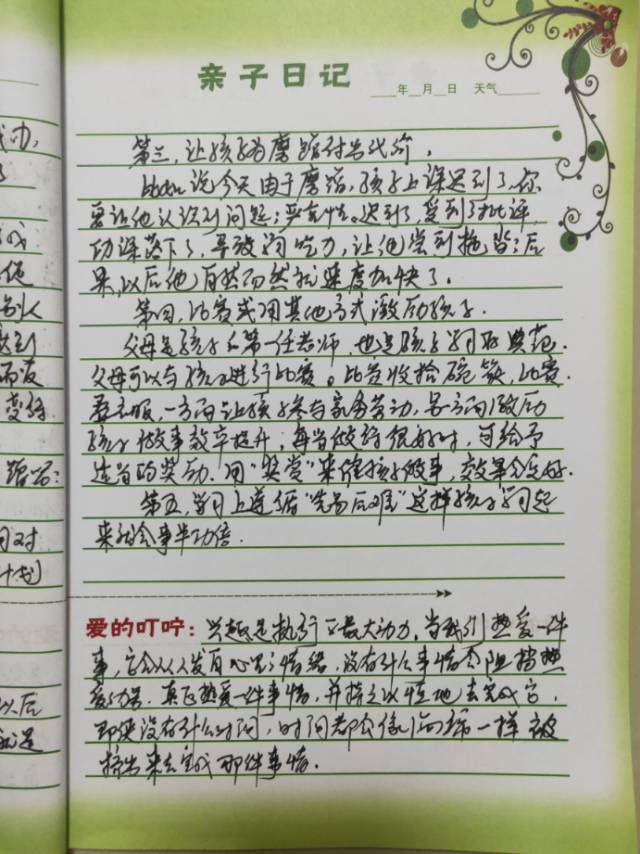 亲子日记
年 月 日 天气
第三,让孩子为磨蹭付出代价,
比如说今天由于磨蹭,孩子上课迟到了,你
要让他认识到问题之严重性。迟到了,受到了批评,
功课落下了,导致学习吃力,让他尝到拖沓之后
果,以后他自然而然就速度加快了.
第四,比赛或用其他方式激励孩子.
父母是孩子的第一任老师,也是孩子学习的典范.
父母可以与孩子进行比赛。比赛收拾碗筷,比赛
叠衣服,一方面让孩子参与家务劳动,另方面激励
孩子做事效率提升;每当做得很好时,可给予
适当的奖励.用“奖赏”来催孩子做事,效果会更好.
第五,学习上遵循“先易后难”这样孩子学习起
来就会事半功倍.
爱的叮咛:兴趣是执行的最大动力,当我们热爱一件
事,它会从人发自心里之情绪,没有什么事情会阻挡热
爱的力量.真正热爱一件事情,并持之以恒地去完成它,
即使没有什么时间,时间都会像海绵一样被
挤出来去完成那件事情.
力,
成
使
别人
达到
而没
变得
蹭呢:
可对
计划
以后
就是